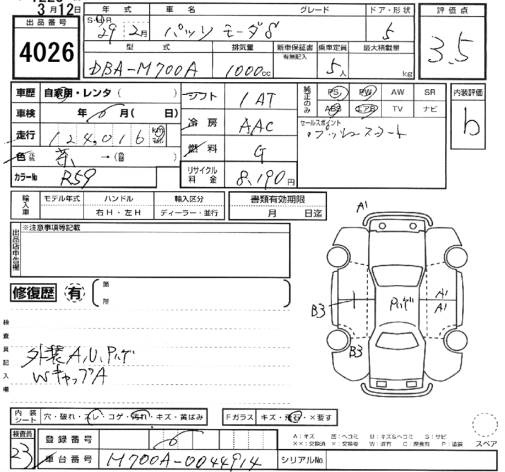 3月12日
出品番号
4026
年式 車名 グレード ドア・形状
S・H・R
29 2月 パッソ モーダS 5
型式 排気量 新車保証書 有無記入 乗車定員 最大積載量
DBA-M700A 1000cc 5人 kg
評価点
3.5
車歴 自家用・レンタ( )
車検 年 0 月( 日)
走行 124,016 km
色 茶 →( )
カラーNo R59
シフト 1AT
冷房 AAC
燃料 G
リサイクル料金 8,190円
純正のみ PS PW AW SR
ABS エアB TV ナビ
セールスポイント
プッシュスタート
内装評価
b
輸入車 モデル年式 ハンドル 右H・左H 輸入区分 ディーラー・並行
書類有効期限
月 日迄
出品店申告欄
※注意事項等記載
修復歴 有 箇所
検査員記入欄
外装A,U,Pハゲ
WキャップA
A1
A1
A1
B3
B3
Pハゲ
内装シート 穴・破れ・スレ・コゲ・汚れ・キズ・黄ばみ
Fガラス キズ・飛石・×要す
検査員
23
登録番号 0
車台番号 M700A-0044914
シリアルNo.
A:キズ 凹:ヘコミ U:キズ&ヘコミ S:サビ
スペア